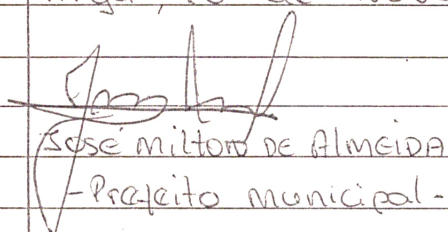 de
José Milton DE AlmeiDA
-Prefeito municipal-